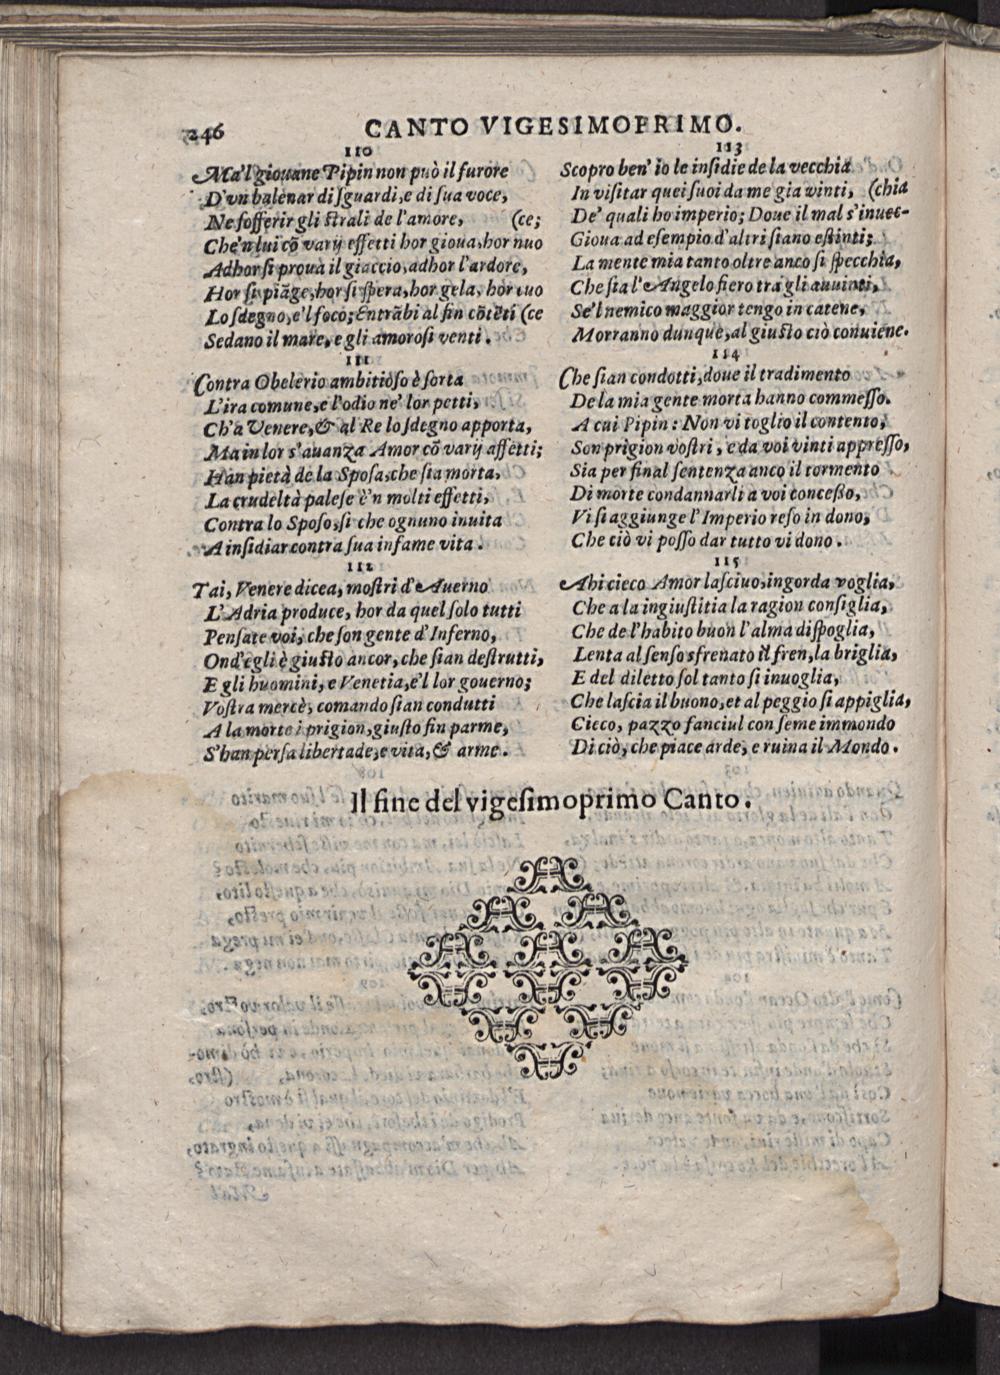 246
CANTO VIGESIMOPRIMO.
110
Ma'l giouane Pipin non può il furore
D'vn balenar di ſguardi, e di ſua voce,
Ne ſofferir gli ſtrali de l'amore, (ce;
Che'n lui cō varij effetti hor gioua, hor nuo
Adhor ſi proua il giaccio, adhor l'ardore,
Hor ſi piāge, hor ſi ſpera, hor gela, hor cuo
Lo ſdegno, e'l foco; Entrābi al fin cōtēti (ce
Sedano il mare, e gli amoroſi venti.
111
Contra Obelerio ambitioſo è ſorta
L'ira comune, e l'odio ne' lor petti,
Ch'à Venere, & al Re lo ſdegno apporta,
Ma in lor s'auanza Amor cō varij affetti;
Han pietà de la Spoſa, che ſia morta,
La crudeltà paleſe è'n molti effetti,
Contra lo Spoſo, ſi che ognuno inuita
A inſidiar contra ſua infame vita.
112
Tai, Venere dicea, moſtri d'Auerno
L'Adria produce, hor da quel ſolo tutti
Penſate voi, che ſon gente d'Inferno,
Ond'egli è giuſto ancor, che ſian deſtrutti,
E gli huomini, e Venetia, e'l lor gouerno;
Voſtra mercè, comando ſian condutti
A la morte i prigion, giuſto fin parme,
S'han perſa libertade, e vita, & arme.
113
Scopro ben' io le inſidie de la vecchia
In viſitar quei ſuoi da me gia vinti, (chia
De' quali ho imperio; Doue il mal s'inuec-
Gioua ad eſempio d'altri ſiano eſtinti;
La mente mia tanto oltre anco ſi ſpecchia,
Che ſia l'Angelo fiero tra gli auuinti,
Se'l nemico maggior tengo in catene,
Morranno dunque, al giuſto ciò conuiene.
114
Che ſian condotti, doue il tradimento
De la mia gente morta hanno commeſſo.
A cui Pipin: Non vi toglio il contento,
Son prigion voſtri, e da voi vinti appreſſo,
Sia per final ſentenza anco il tormento
Di morte condannarli a voi conceßo,
Vi ſi aggiunge l'Imperio reſo in dono,
Che ciò vi poſſo dar tutto vi dono.
115
Ahi cieco Amor laſciuo, ingorda voglia,
Che a la ingiuſtitia la ragion conſiglia,
Che de l'habito buon l'alma diſpoglia,
Lenta al ſenſo sfrenato il fren, la briglia,
E del diletto ſol tanto ſi inuoglia,
Che laſcia il buono, et al peggio ſi appiglia,
Cieco, pazzo fanciul con ſeme immondo
Di ciò, che piace arde, e ruina il Mondo.
Il fine del vigeſimoprimo Canto.